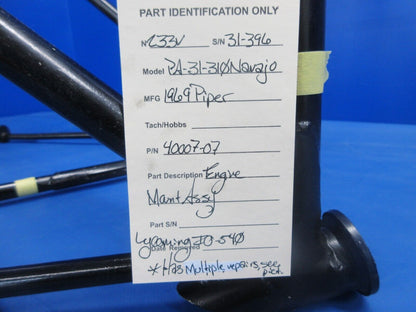 PART IDENTIFICATION ONLY
N 233V S/N 31-396
Model PA-31-310 Navajo
MFG 1969 Piper
Tach/Hobbs
P/N 40007-07
Part Description Engine
Mount Assy
Part S/N
Lycoming IO-540
Date Removed
* Has Multiple repairs, see
pick